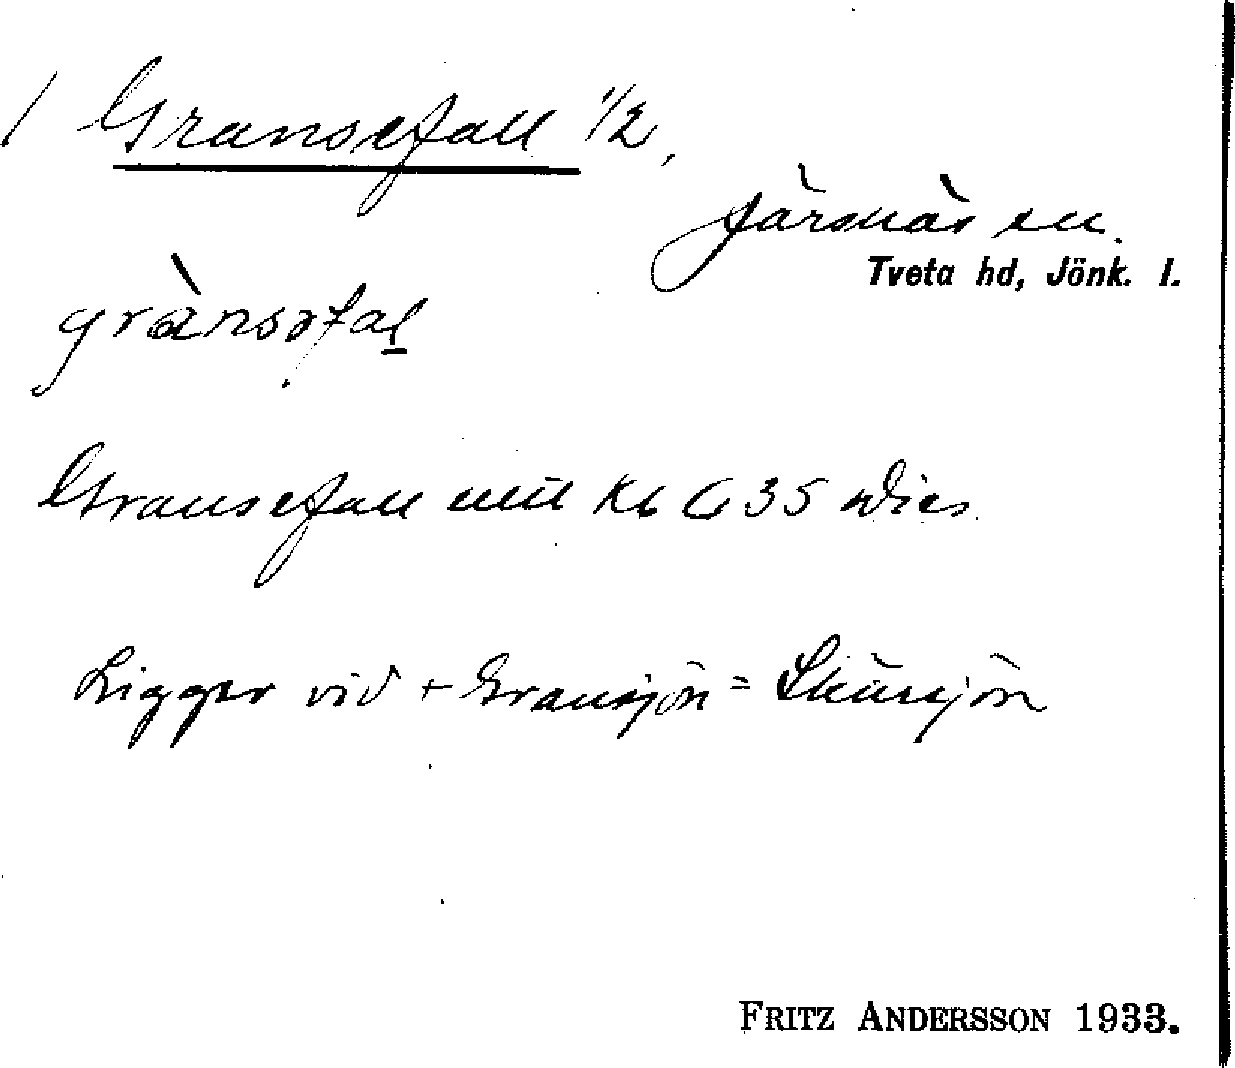 / Gransefall 1/2,
Järsnäs sn.
Tveta hd, Jönk. l.
grànsəfal
Gransefall mtl Kb G 35 Wies
Ligger vid + Gransjön = Skärsjön
FRITZ ANDERSSON 1933.